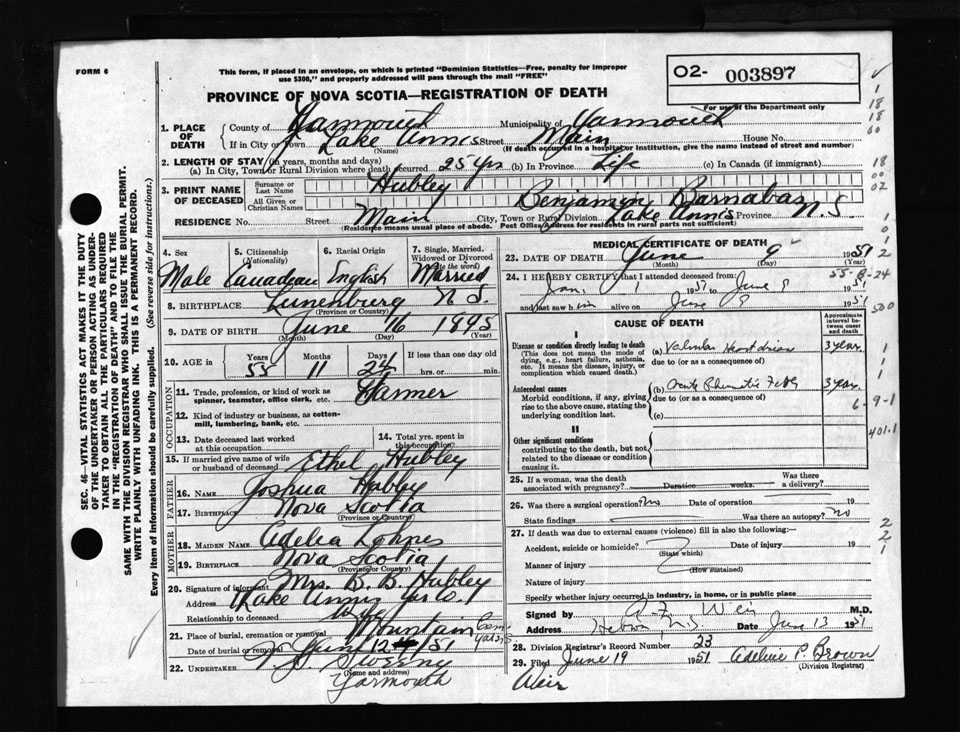 FORM 6
This form, if placed in an envelope, on which is printed "Dominion Statistics—Free, penalty for improper
use $300," and properly addressed will pass through the mail "FREE"
02- 003897
For use of the Department only
PROVINCE OF NOVA SCOTIA—REGISTRATION OF DEATH
1. PLACE OF DEATH County of Yarmouth Municipality of Yarmouth
If in City or Town Lake Annis Street Main House No.
(Name) (If death occurred in a hospital or institution, give the name instead of street and number)
2. LENGTH OF STAY (in years, months and days)
(a) In City, Town or Rural Division where death occurred 25 yrs (b) In Province Life (c) In Canada (if immigrant)
3. PRINT NAME OF DECEASED Surname or Last Name Hubley
All Given or Christian Names Benjamin Barnabas
RESIDENCE No. Street Main City, Town or Rural Division Lake Annis Province N.S.
(Residence means usual place of abode. Post Office Address for residents in rural parts not sufficient)
4. Sex 5. Citizenship (Nationality) 6. Racial Origin 7. Single, Married, Widowed or Divorced (Write the word)
Male Canadian English Married
8. BIRTHPLACE Lunenburg N S.
(Province or Country)
9. DATE OF BIRTH June 16 1895
(Month) (Day) (Year)
10. AGE in Years 55 Months 11 Days 24 If less than one day old hrs. or min.
OCCUPATION
11. Trade, profession, or kind of work as spinner, teamster, office clerk, etc. Farmer
12. Kind of industry or business, as cotton-mill, lumbering, bank, etc.
13. Date deceased last worked at this occupation 14. Total yrs. spent in this occupation
15. If married give name of wife or husband of deceased Ethel Hubley
FATHER
16. NAME Joshua Hubley
17. BIRTHPLACE Nova Scotia
(Province or Country)
MOTHER
18. MAIDEN NAME Adelia Lohnes
19. BIRTHPLACE Nova Scotia
(Province or Country)
20. Signature of informant Mrs. B. B. Hubley
Address Lake Annis Yar Co.
Relationship to deceased wife
21. Place of burial, cremation or removal Mountain Cem.
Date of burial or removal June 12 /51
22. UNDERTAKER Sweeny
(Name and address)
Yarmouth
MEDICAL CERTIFICATE OF DEATH
23. DATE OF DEATH June 9 1951
(Month) (Day) (Year)
24. I HEREBY CERTIFY that I attended deceased from
Jan. 1 1951 to June 9 1951
and last saw him alive on June 9 1951
CAUSE OF DEATH Approximate interval between onset and death
I
Disease or condition directly leading to death (a) Valvular Heart disease 3 years
(This does not mean the mode of dying, e.g., heart failure, asthenia, etc. It means the disease, injury, or complication which caused death.) due to (or as a consequence of)
Antecedent causes (b) Acute Rheumatic Fever 3 years
Morbid conditions, if any, giving rise to the above cause, stating the underlying condition last. due to (or as a consequence of)
(c)
II
Other significant conditions
contributing to the death, but not related to the disease or condition causing it.
25. If a woman, was the death associated with pregnancy? Duration weeks. Was there a delivery?
26. Was there a surgical operation? No Date of operation 19
State findings Was there an autopsy? No
27. If death was due to external causes (violence) fill in also the following:—
Accident, suicide or homicide? Date of injury 19
(State which)
Manner of injury
(How sustained)
Nature of injury
Specify whether injury occurred in industry, in home, or in public place
Signed by Weir M.D.
Address Hebron N S Date June 13 1951
28. Division Registrar's Record Number 23
29. Filed June 19 1951 Adeline P. Brown
(Division Registrar)
Weir
1
18
18
60
18
00
02
1
0
1
2
55-8-24
500
1
1
1
6-9-1
401.1
2
2
1
SEC. 46—VITAL STATISTICS ACT MAKES IT THE DUTY
OF THE UNDERTAKER OR PERSON ACTING AS UNDER-
TAKER TO OBTAIN ALL THE PARTICULARS REQUIRED
IN THE "REGISTRATION OF DEATH" AND TO FILE THE
SAME WITH THE DIVISION REGISTRAR WHO SHALL ISSUE THE BURIAL PERMIT.
WRITE PLAINLY WITH UNFADING INK. THIS IS A PERMANENT RECORD.
Every item of information should be carefully supplied. (See reverse side for instructions.)